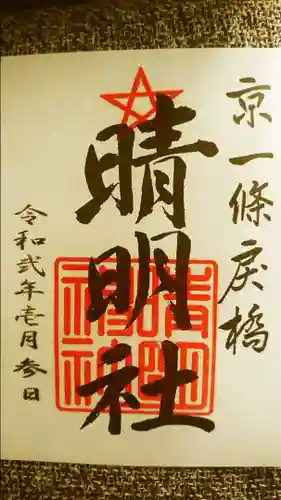 京一條戻橋
晴明社
晴明
神社
令和弐年壱月参日